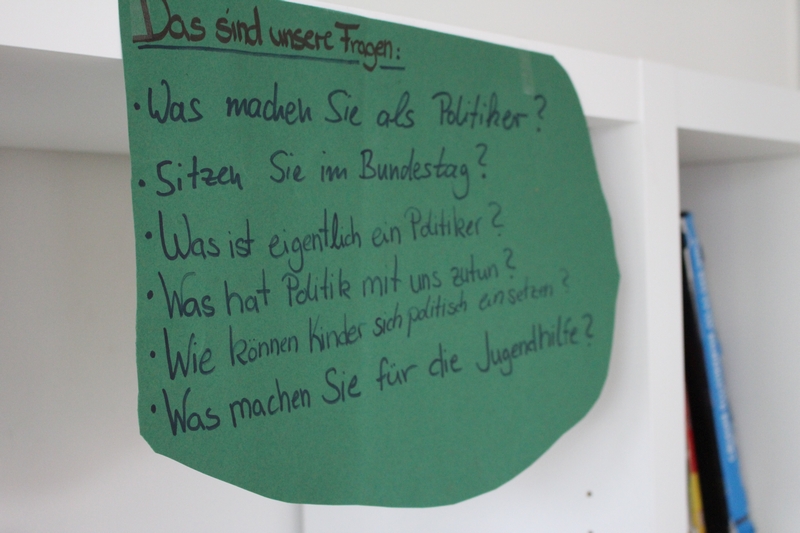 Das sind unsere Fragen:
• Was machen Sie als Politiker?
• Sitzen Sie im Bundestag?
• Was ist eigentlich ein Politiker?
• Was hat Politik mit uns zutun?
• Wie können Kinder sich politisch einsetzen?
• Was machen Sie für die Jugendhilfe?